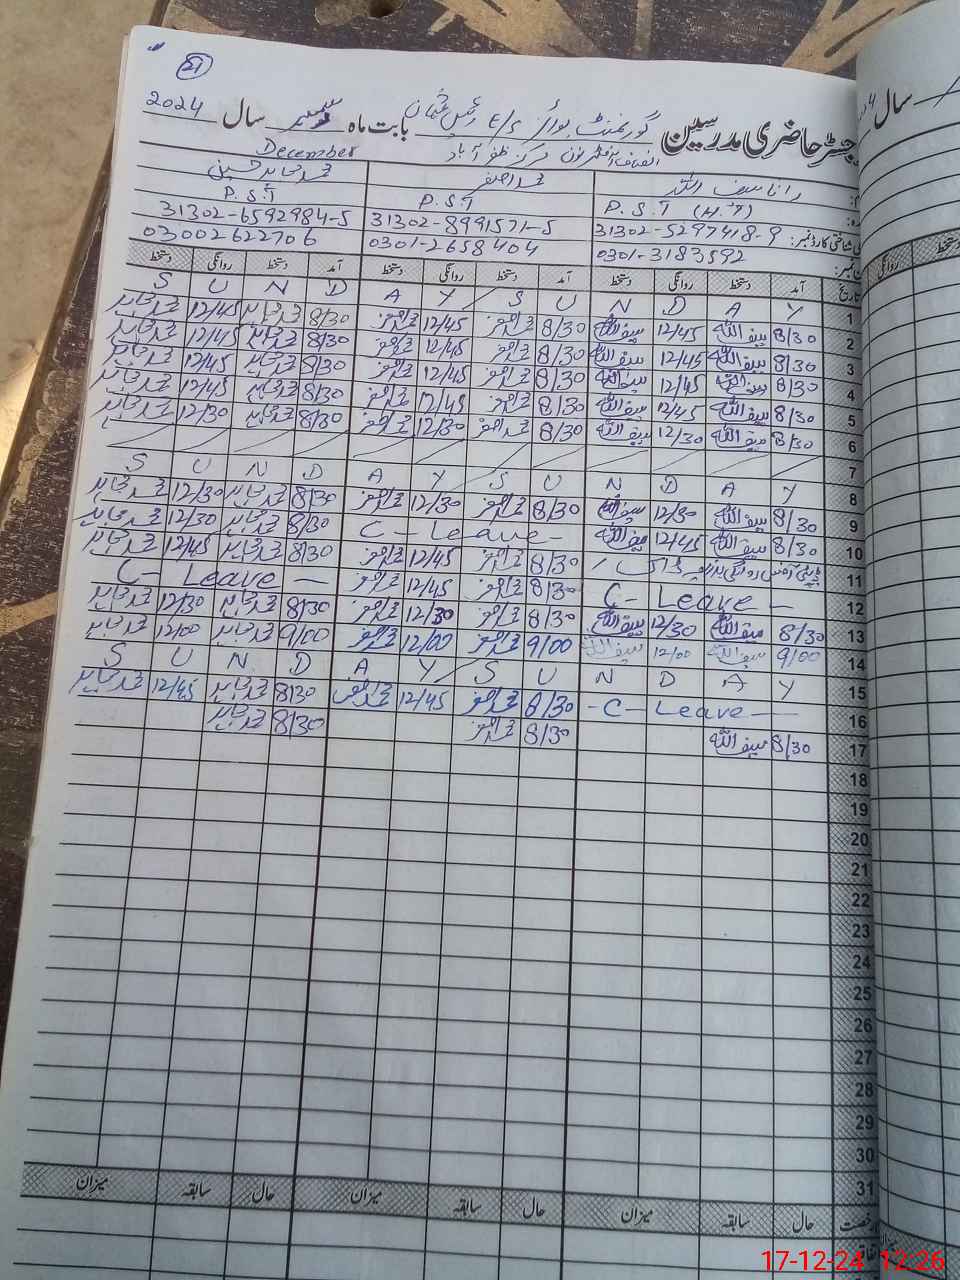 21
رجسٹر حاضری مدرسین گورنمنٹ بوائز E/S رئیس عثمان بابت ماہ دسمبر سال 2024
December
مرکز ظفر آباد
رانا سیف اللہ محمد اصغر
P.S.T (H.T) P.S.T P.S.T
31302-5297418-9 31302-8991571-5 31302-6592984-5
0301-3183592 0301-2658404 03002622706
تاریخ آمد دستخط روانگی دستخط آمد دستخط روانگی دستخط آمد دستخط روانگی دستخط
1 S U N D A Y / S U N D A Y
2 8/30 سیف اللہ 12/45 سیف اللہ 8/30 محمد اصغر 12/45 محمد اصغر 8/30 12/45
3 8/30 سیف اللہ 12/45 سیف اللہ 8/30 محمد اصغر 12/45 محمد اصغر 8/30 12/45
4 8/30 سیف اللہ 12/45 سیف اللہ 8/30 محمد اصغر 12/45 محمد اصغر 8/30 12/45
5 8/30 سیف اللہ 12/45 سیف اللہ 8/30 محمد اصغر 12/45 محمد اصغر 8/30 12/45
6 8/30 سیف اللہ 12/30 سیف اللہ 8/30 محمد اصغر 12/30 محمد اصغر 8/30 12/30
7
8 S U N D A Y S U N D A Y
9 8/30 سیف اللہ 12/30 سیف اللہ 8/30 محمد اصغر 12/30 محمد اصغر 8/30 12/30
10 8/30 سیف اللہ 12/45 سیف اللہ C-Leave- 8/30 12/30
11 8/30 محمد اصغر 12/45 محمد اصغر 8/30 12/45
12 C-Leave- 8/30 محمد اصغر 12/45 محمد اصغر C-Leave-
13 8/30 سیف اللہ 12/30 سیف اللہ 8/30 محمد اصغر 12/30 محمد اصغر 8/30 12/30
14 9/00 سیف اللہ 12/00 سیف اللہ 9/00 محمد اصغر 12/00 محمد اصغر 9/00 12/00
15 S U N D A Y / S U N D A Y
16 -C-Leave- 8/30 محمد اصغر 12/45 محمد اصغر 8/30 12/45
17 8/30 سیف اللہ 8/30 محمد اصغر 8/30
18
19
20
21
22
23
24
25
26
27
28
29
30
31
حال سابقہ میزان حال سابقہ میزان حال سابقہ میزان
17-12-24 12:26